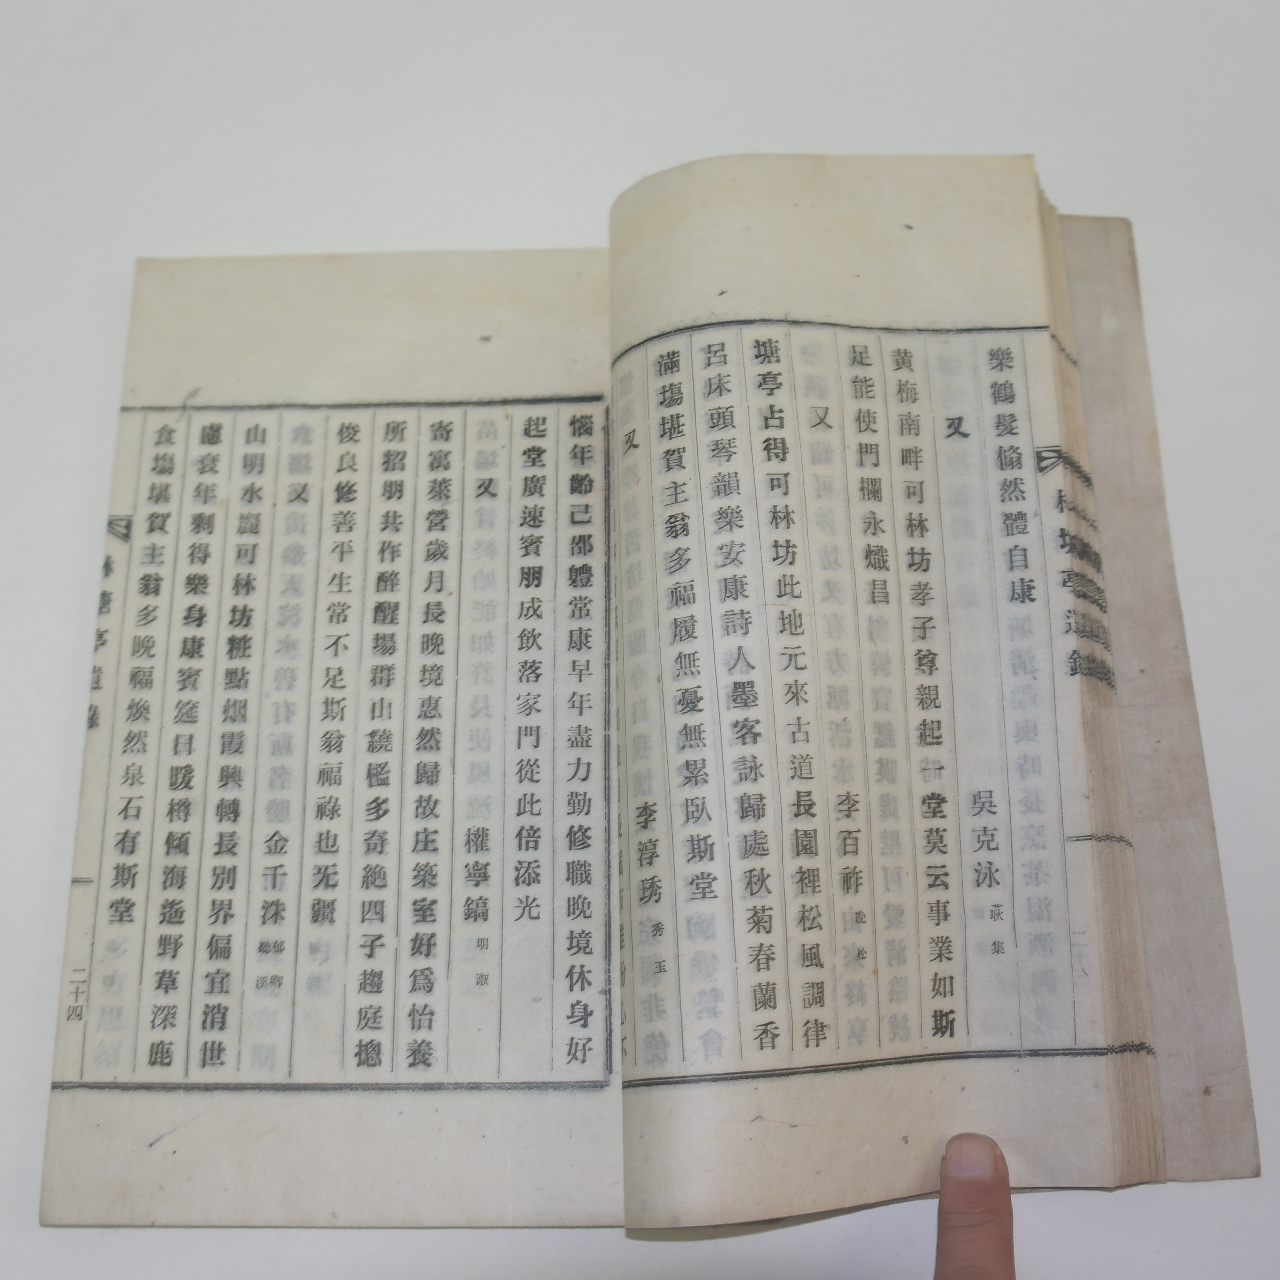 樂鶴髮翛然體自康
又
吳克泳
黄梅南畔可林坊孝子尊親起一堂莫云事業如斯
足能使門欄永熾昌
又
李百祚
晩松
塘亭占得可林坊此地元來古道長園裡松風調律
呂床頭琴韻樂安康詩人墨客詠歸處秋菊春蘭香
滿塲堪賀主翁多福履無憂無累臥斯堂
又
李淳琇
秀玉
惱年齡己邵軆常康早年盡力勤修職晩境休身好
起堂廣速賓朋成飲落家門從此倍添光
又
權寧鎬
明淑
寄寓萊營歲月長晩境惠然歸故庄築室好爲怡養
所招朋共作醉醒場群山繞檻多奇絶四子趨庭摠
俊良修善平生常不足斯翁福祿也旡疆
又
金千洙
郁卿
聽溪
山明水麗可林坊粧點烟霞興轉長別界偏宜消世
慮衰年剩得樂身康賓筵日暖樽傾海遙野草深鹿
食塲堪賀主翁多晩福煥然泉石有斯堂
林塘亭遺錄
二十四